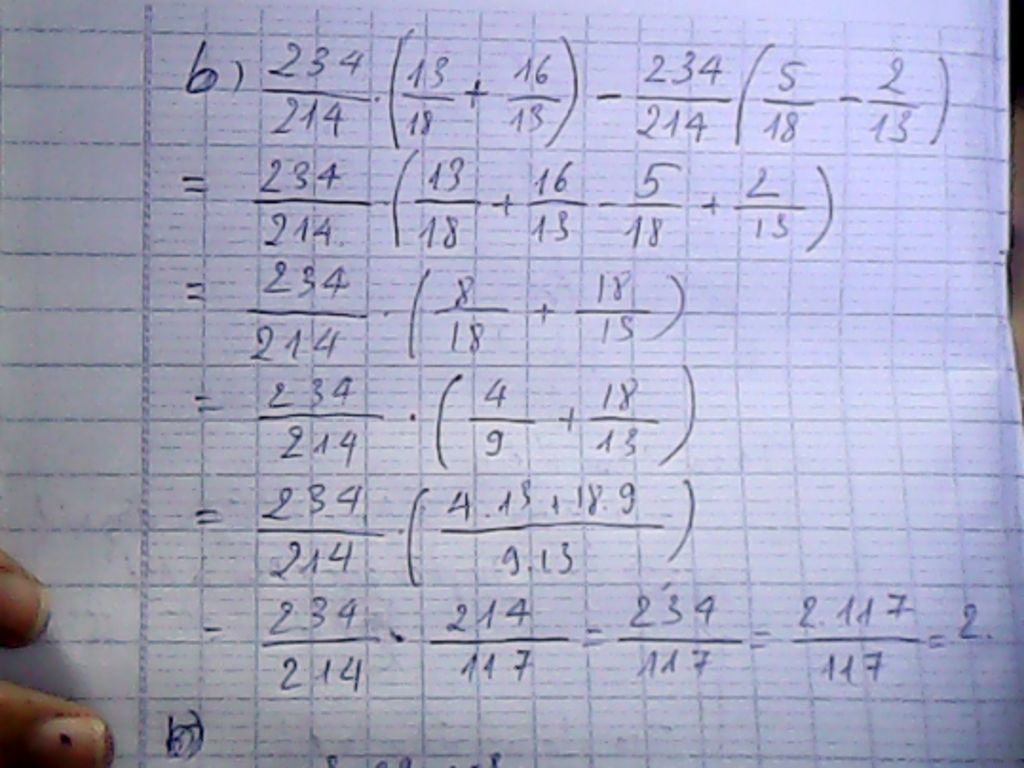 b) 234/214 · (13/18 + 16/13) - 234/214 (5/18 - 2/13)
= 234/214 · (13/18 + 16/13 - 5/18 + 2/13)
= 234/214 · (8/18 + 18/13)
= 234/214 · (4/9 + 18/13)
= 234/214 · (4.13+18.9/9.13)
= 234/214 · 214/117 = 234/117 = 2.117/117 = 2.
b)